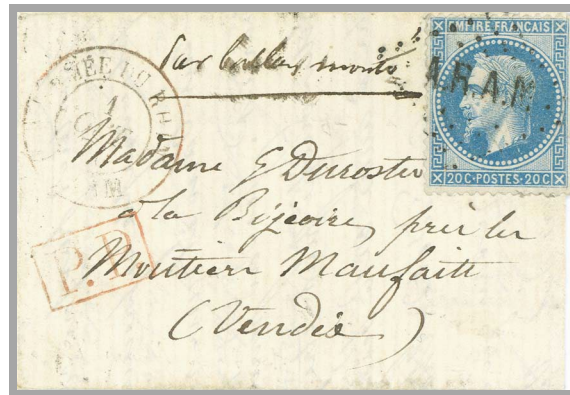 Par ballon monté
EMPIRE FRANÇAIS
A.R.A.M
20C·POSTES·20C
ARMÉE DU RHIN
1
AM
Madame G Durostu
à la Bijeoire, près les
P.P.
Moutiers Maufaits
(Vendée)